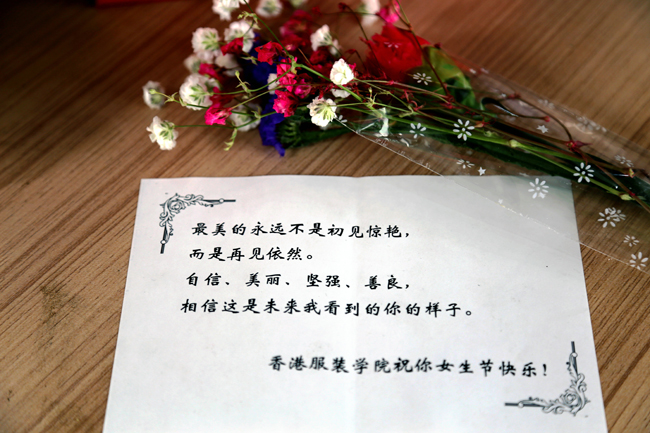 最美的永远不是初见惊艳，
而是再见依然。
自信、美丽、坚强、善良，
相信这是未来我看到的你的样子。
香港服装学院祝你女生节快乐！